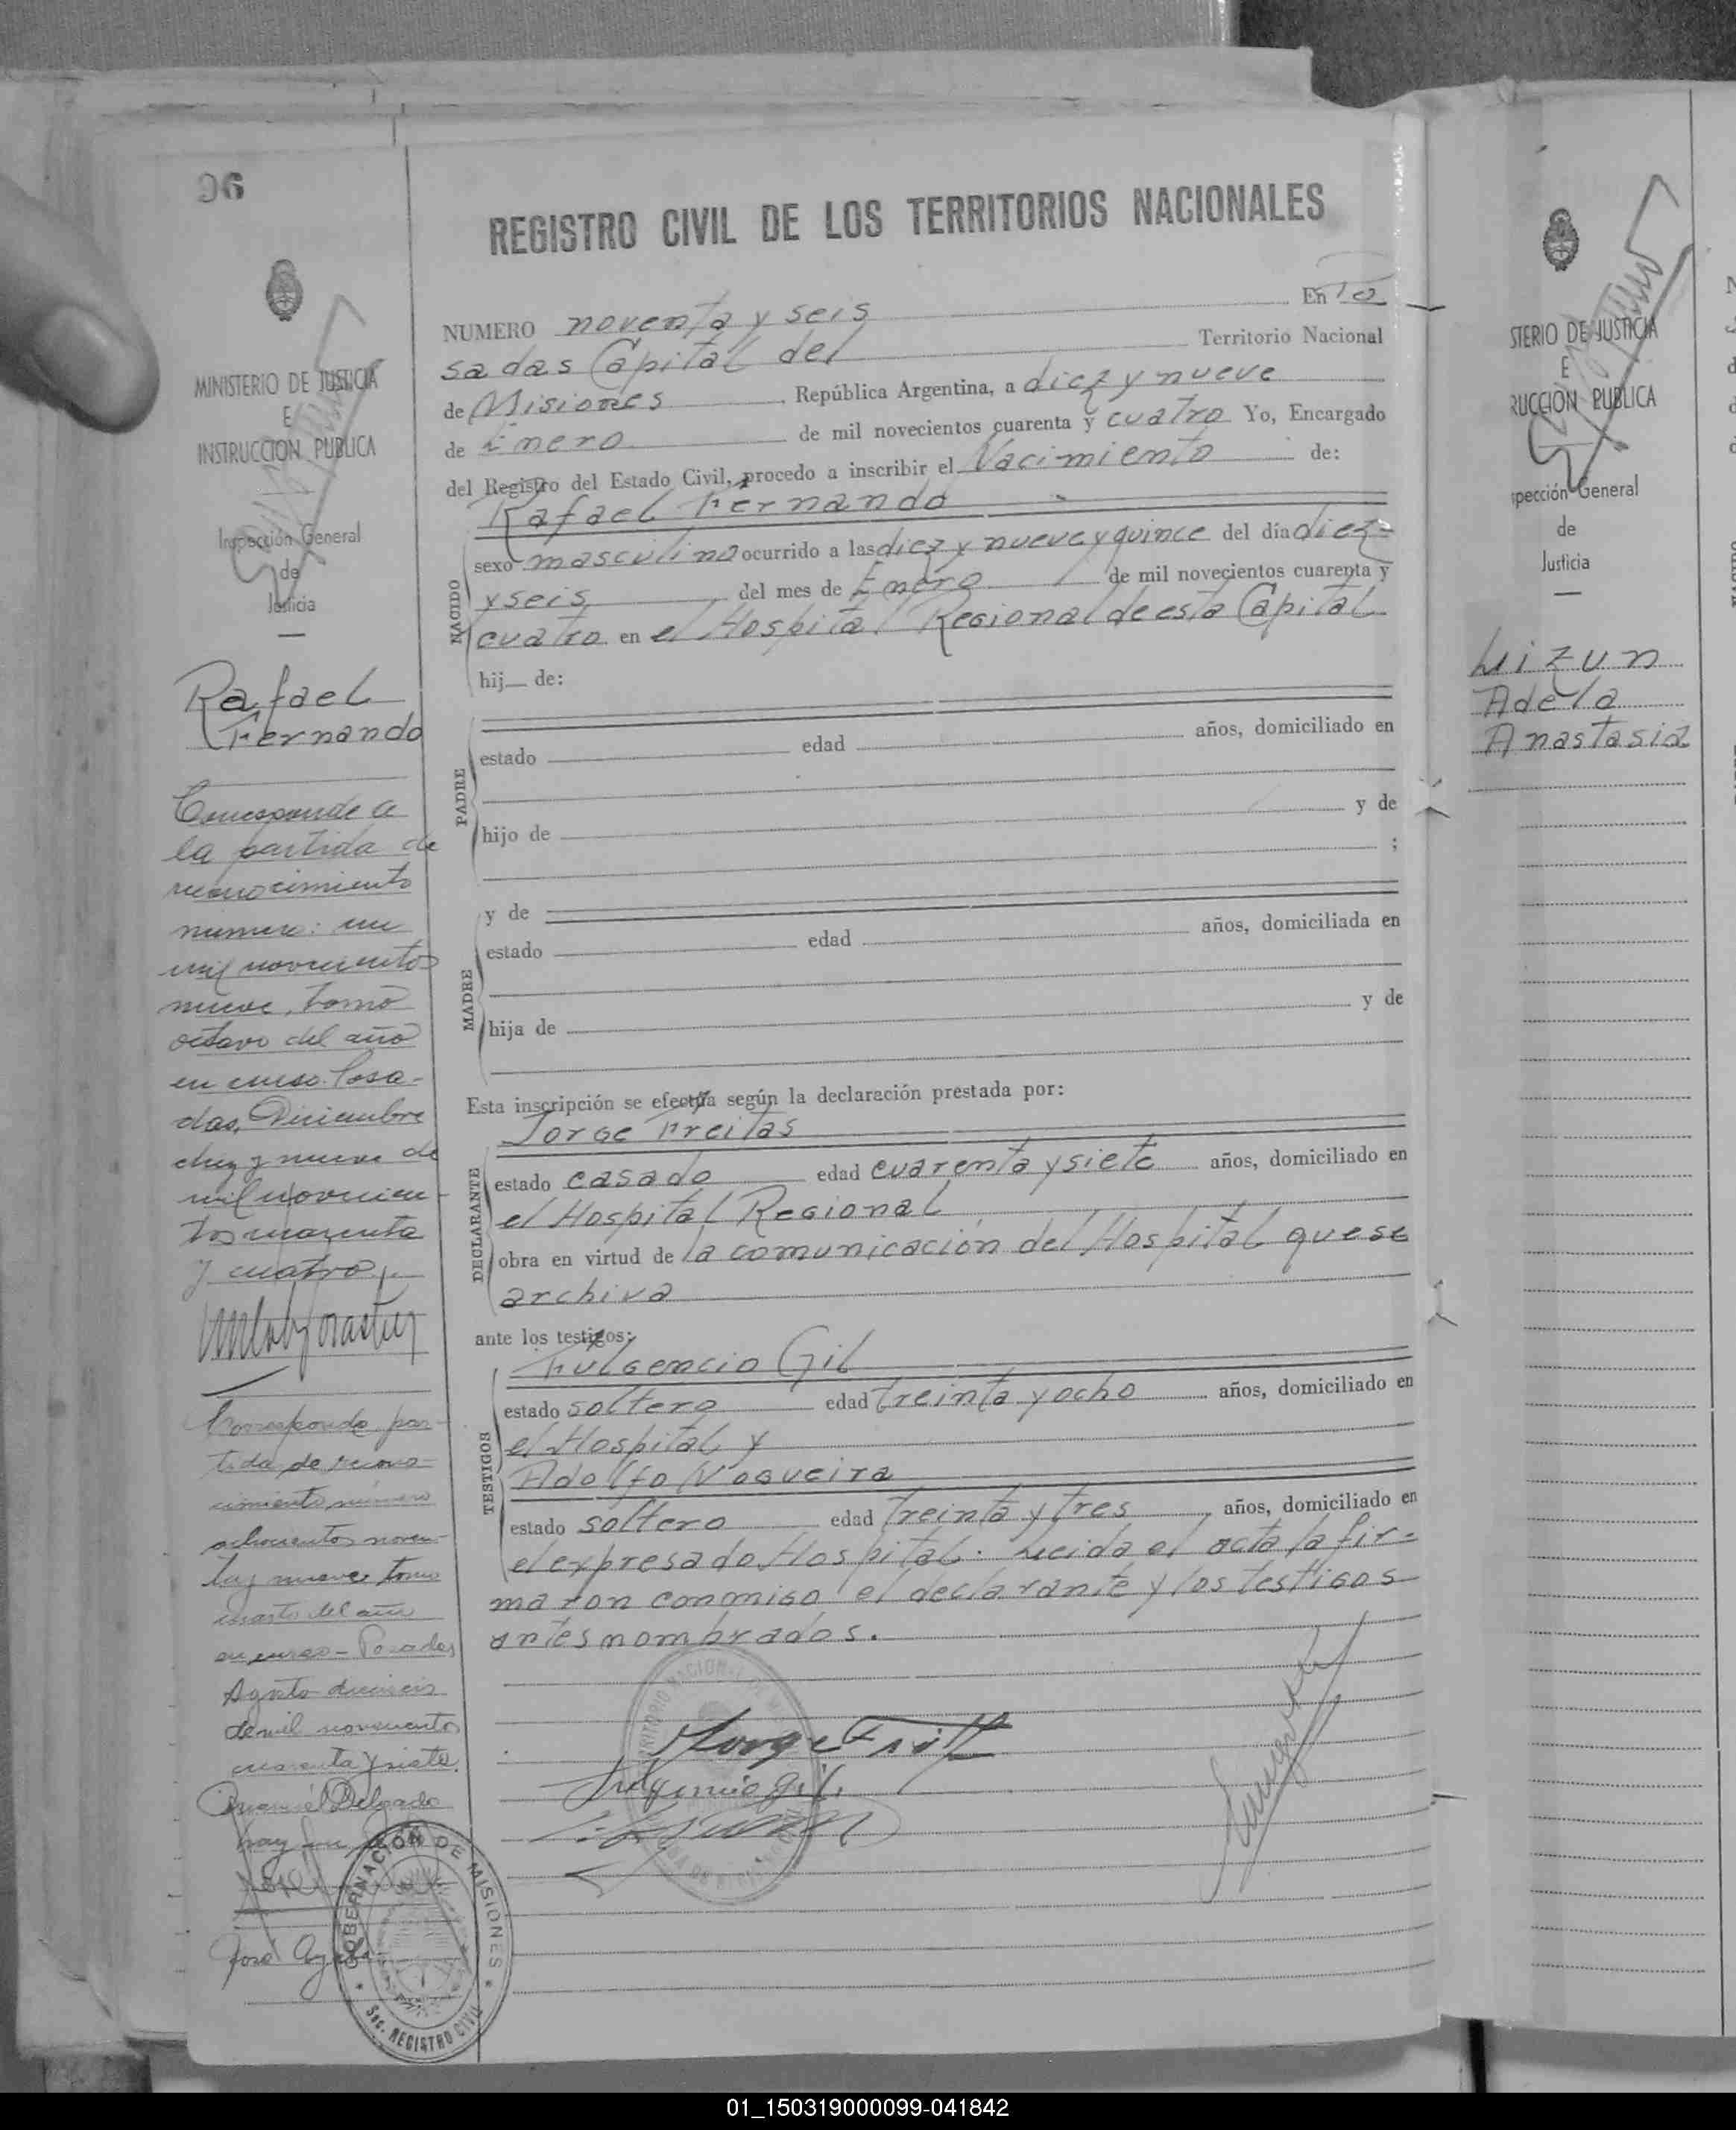 96
MINISTERIO DE JUSTICIA
E
INSTRUCCION PUBLICA
Inspección General
de
Justicia
Rafael
Fernando
Corresponde a
la partida de
reconocimiento
número: un
mil novecientos
nueve, tomo
octavo del año
en curso. Posa-
das, Diciembre
diez y nueve de
mil novecien-
tos cuarenta
y cuatro.
Corresponde par-
tida de recono-
cimiento número
ochocientos noven-
ta y nueve tomo
cuarto del año
en curso - Posadas
Agosto dieciseis
de mil novecientos
cuarenta y siete.
Manuel Delgado
hay un
José
GOBERNACIÓN DE MISIONES
Sec. REGISTRO CIVIL
REGISTRO CIVIL DE LOS TERRITORIOS NACIONALES
NUMERO noventa y seis En Po
sadas Capital del Territorio Nacional
de Misiones República Argentina, a diez y nueve
de Enero de mil novecientos cuarenta y cuatro Yo, Encargado
del Registro del Estado Civil, procedo a inscribir el Nacimiento de:
Rafael Fernando
NACIDO
sexo masculino ocurrido a las diez y nueve y quince del día diez
y seis del mes de Enero de mil novecientos cuarenta y
cuatro en el Hospital Regional de esta Capital
hij de:
PADRE
estado edad años, domiciliado en
hijo de y de
;
y de
MADRE
estado edad años, domiciliada en
hija de y de
Esta inscripción se efectúa según la declaración prestada por:
Jorge Freitas
DECLARANTE
estado casado edad cuarenta y siete años, domiciliado en
el Hospital Regional
obra en virtud de la comunicación del Hospital que se
archiva
ante los testigos:
Fulgencio Gil
TESTIGOS
estado soltero edad treinta y ocho años, domiciliado en
el Hospital y
Adolfo Nogueira
estado soltero edad treinta y tres años, domiciliado en
el expresado Hospital. Leida el acta la fir-
maron conmigo el declarante y los testigos
antes nombrados.
Jorge
Fulgencio Gil
STERIO DE JUSTICIA
E
RUCCION PUBLICA
pección General
de
Justicia
Lizun
Adela
Anastasia
01_150319000099-041842